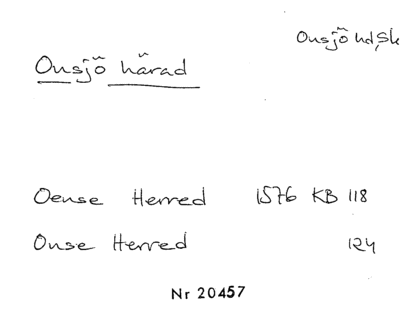 Onsjö hd, Sk
Onsjö härad
Oense Herred 1576 KB 118
Onse Herred 124
Nr 20457